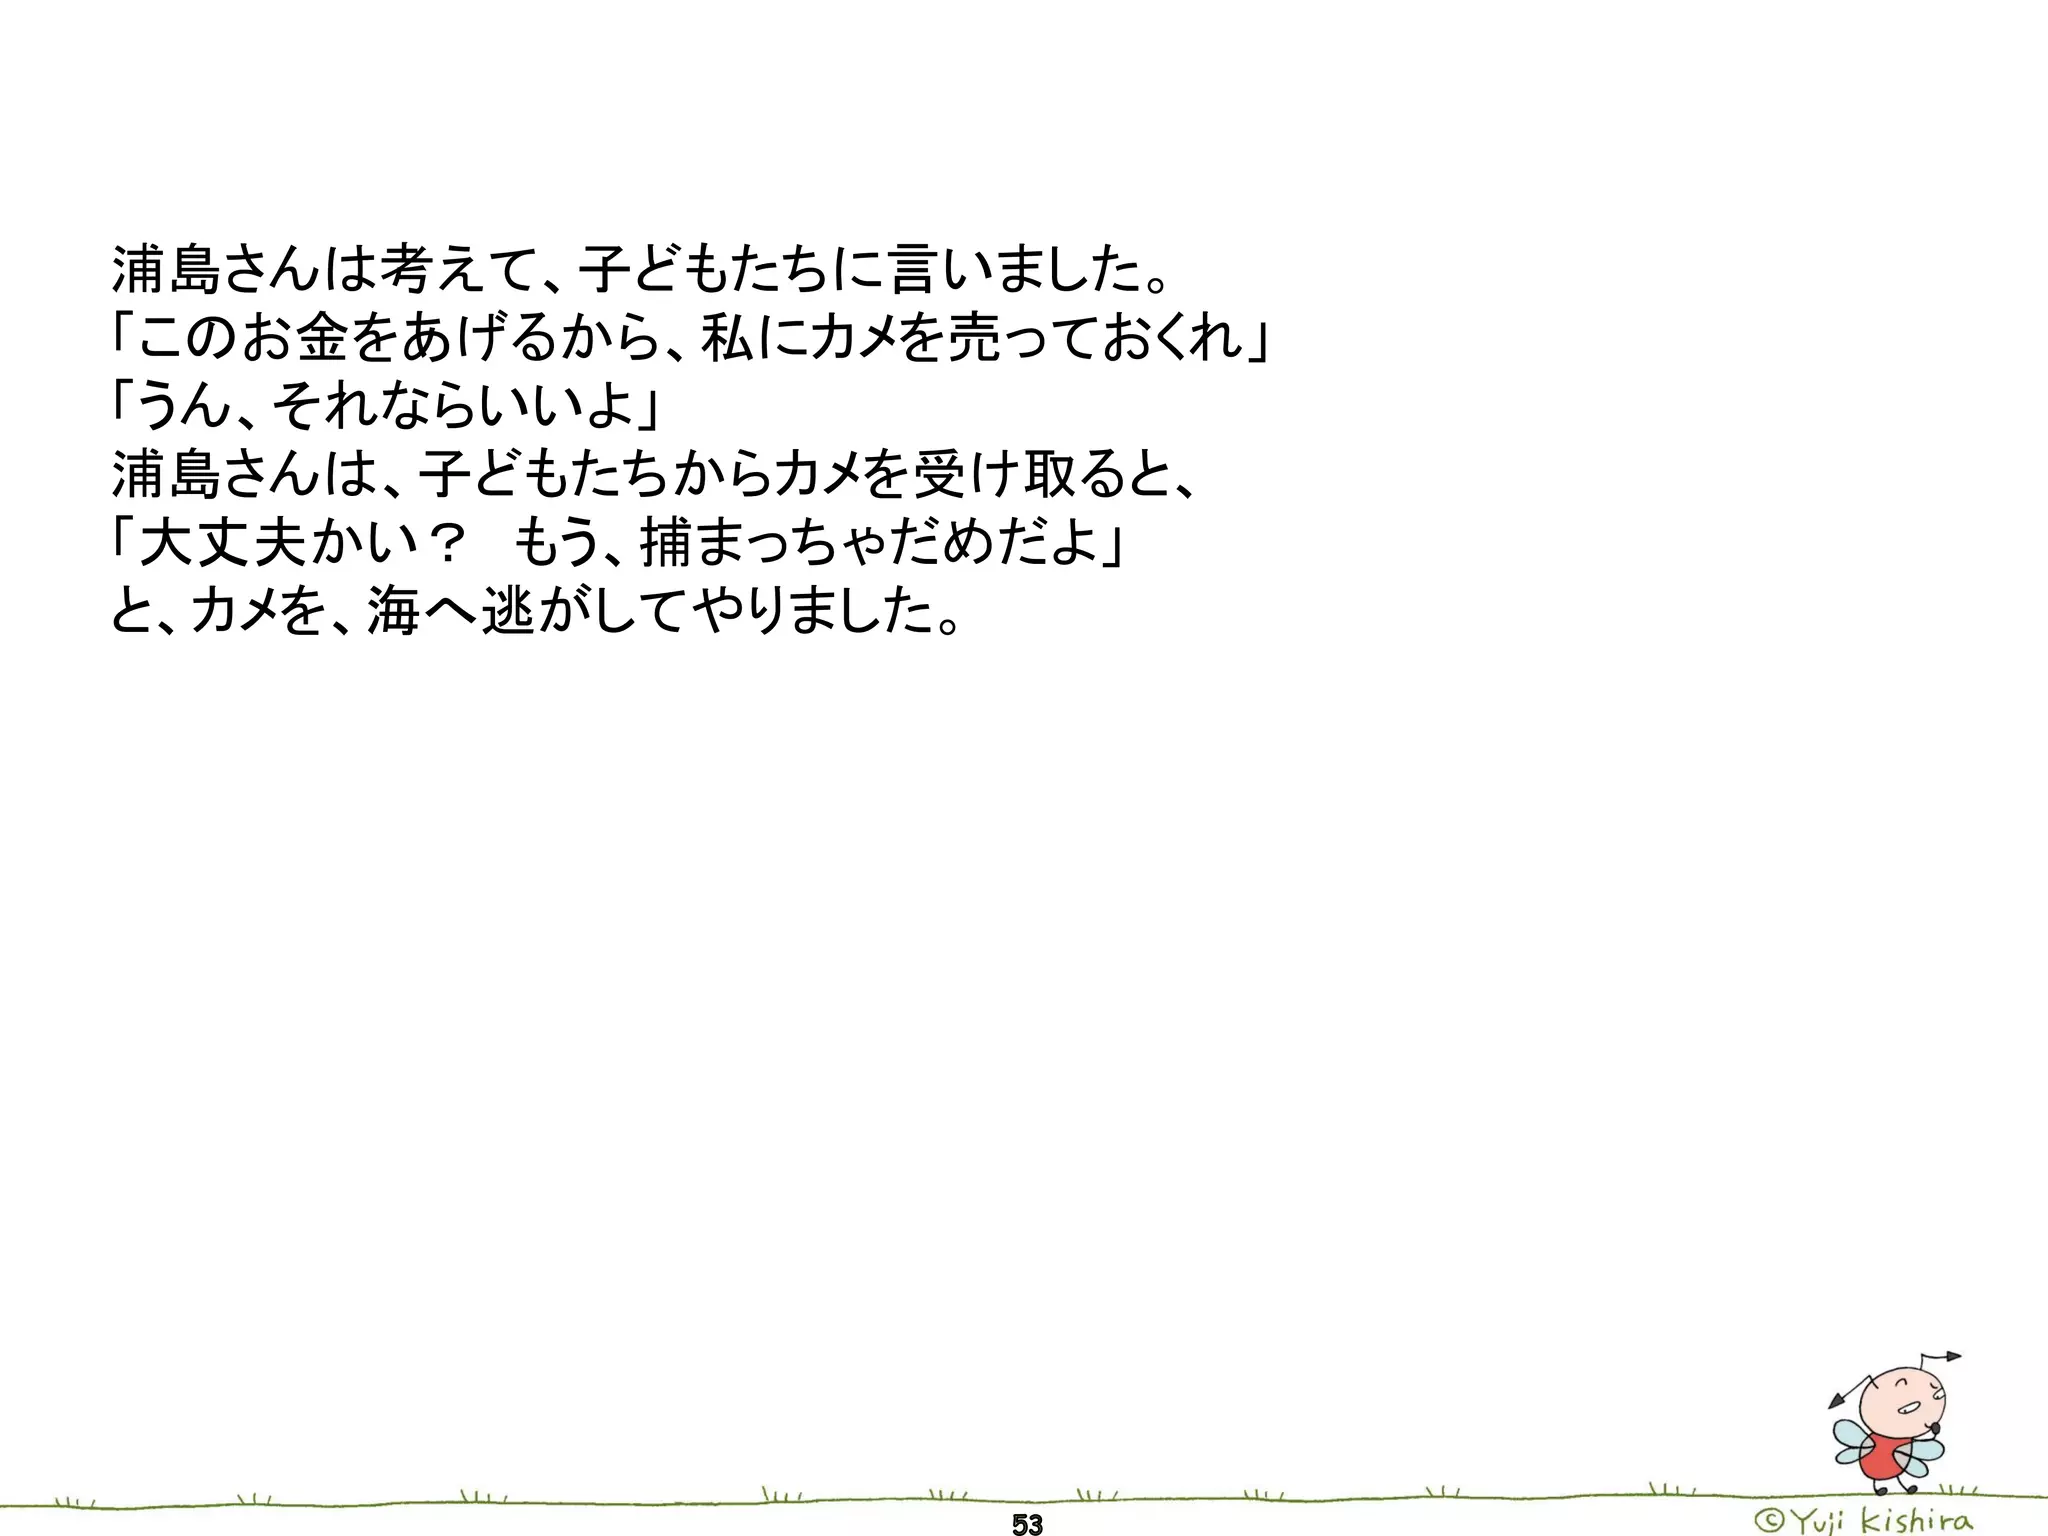 浦島さんは考えて、子どもたちに言いました。
「このお金をあげるから、私にカメを売っておくれ」
「うん、それならいいよ」
浦島さんは、子どもたちからカメを受け取ると、
「大丈夫かい？　もう、捕まっちゃだめだよ」
と、カメを、海へ逃がしてやりました。
53
©Yuji Kishira